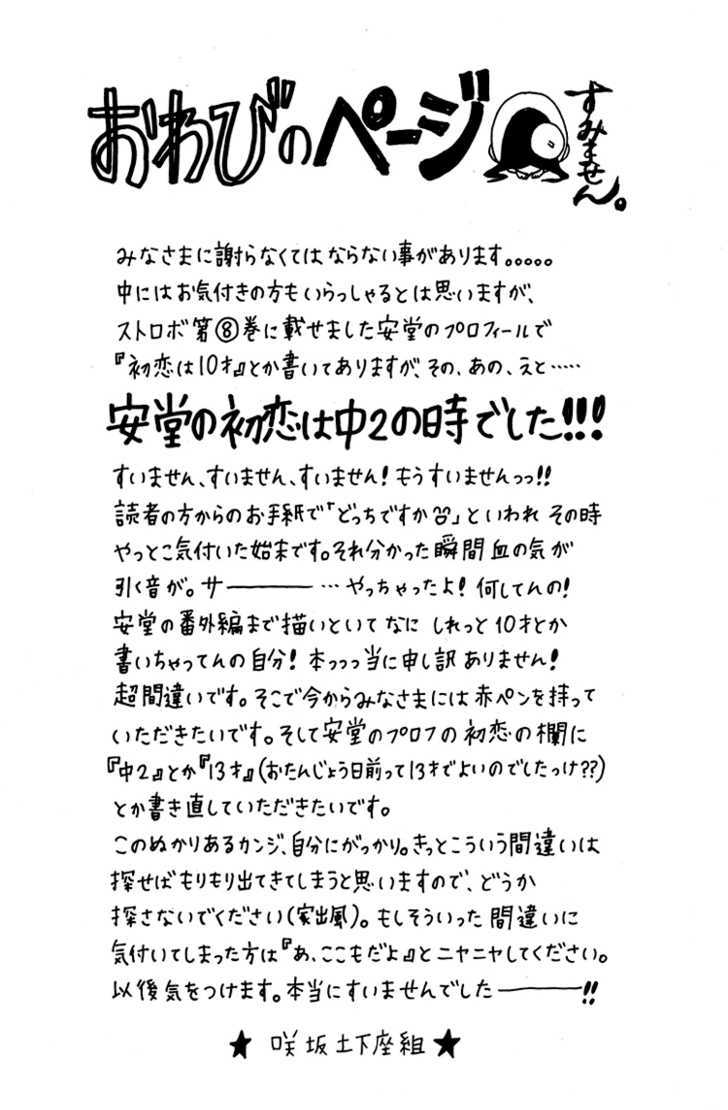 おわびのページ
すみません。
みなさまに謝らなくてはならない事があります。。。。。
中にはお気付きの方もいらっしゃるとは思いますが、
ストロボ第⑧巻に載せました安堂のプロフィールで
『初恋は10才』とか書いてありますが、その、あの、えと‥‥‥
安堂の初恋は中2の時でした!!!
すいません、すいません、すいません! もうすいませんっっ!!
読者の方からのお手紙で「どっちですか」といわれ その時
やっとこ気付いた始末です。それ分かった瞬間 血の気が
引く音が。サ――――― … やっちゃったよ! 何してんの!
安堂の番外編まで描いといて なに しれっと 10才とか
書いちゃってんの自分! 本っっっ当に申し訳 ありません!
超間違いです。そこで今からみなさまには 赤ペンを持って
いただきたいです。そして安堂のプロフの 初恋の 欄に
『中2』とか『13才』(おたんじょう日前って13才でよいのでしたっけ??)
とか書き直していただきたいです。
このぬかりあるカンジ、自分にがっかり。きっとこういう間違いは
探せば もりもり出てきてしまうと思いますので、どうか
探さないでください(家出風)。もしそういった 間違いに
気付いてしまった方は『あ、ここもだよ』と ニヤニヤしてください。
以後気をつけます。本当にすいませんでした―――――!!
★ 咲坂土下座組 ★